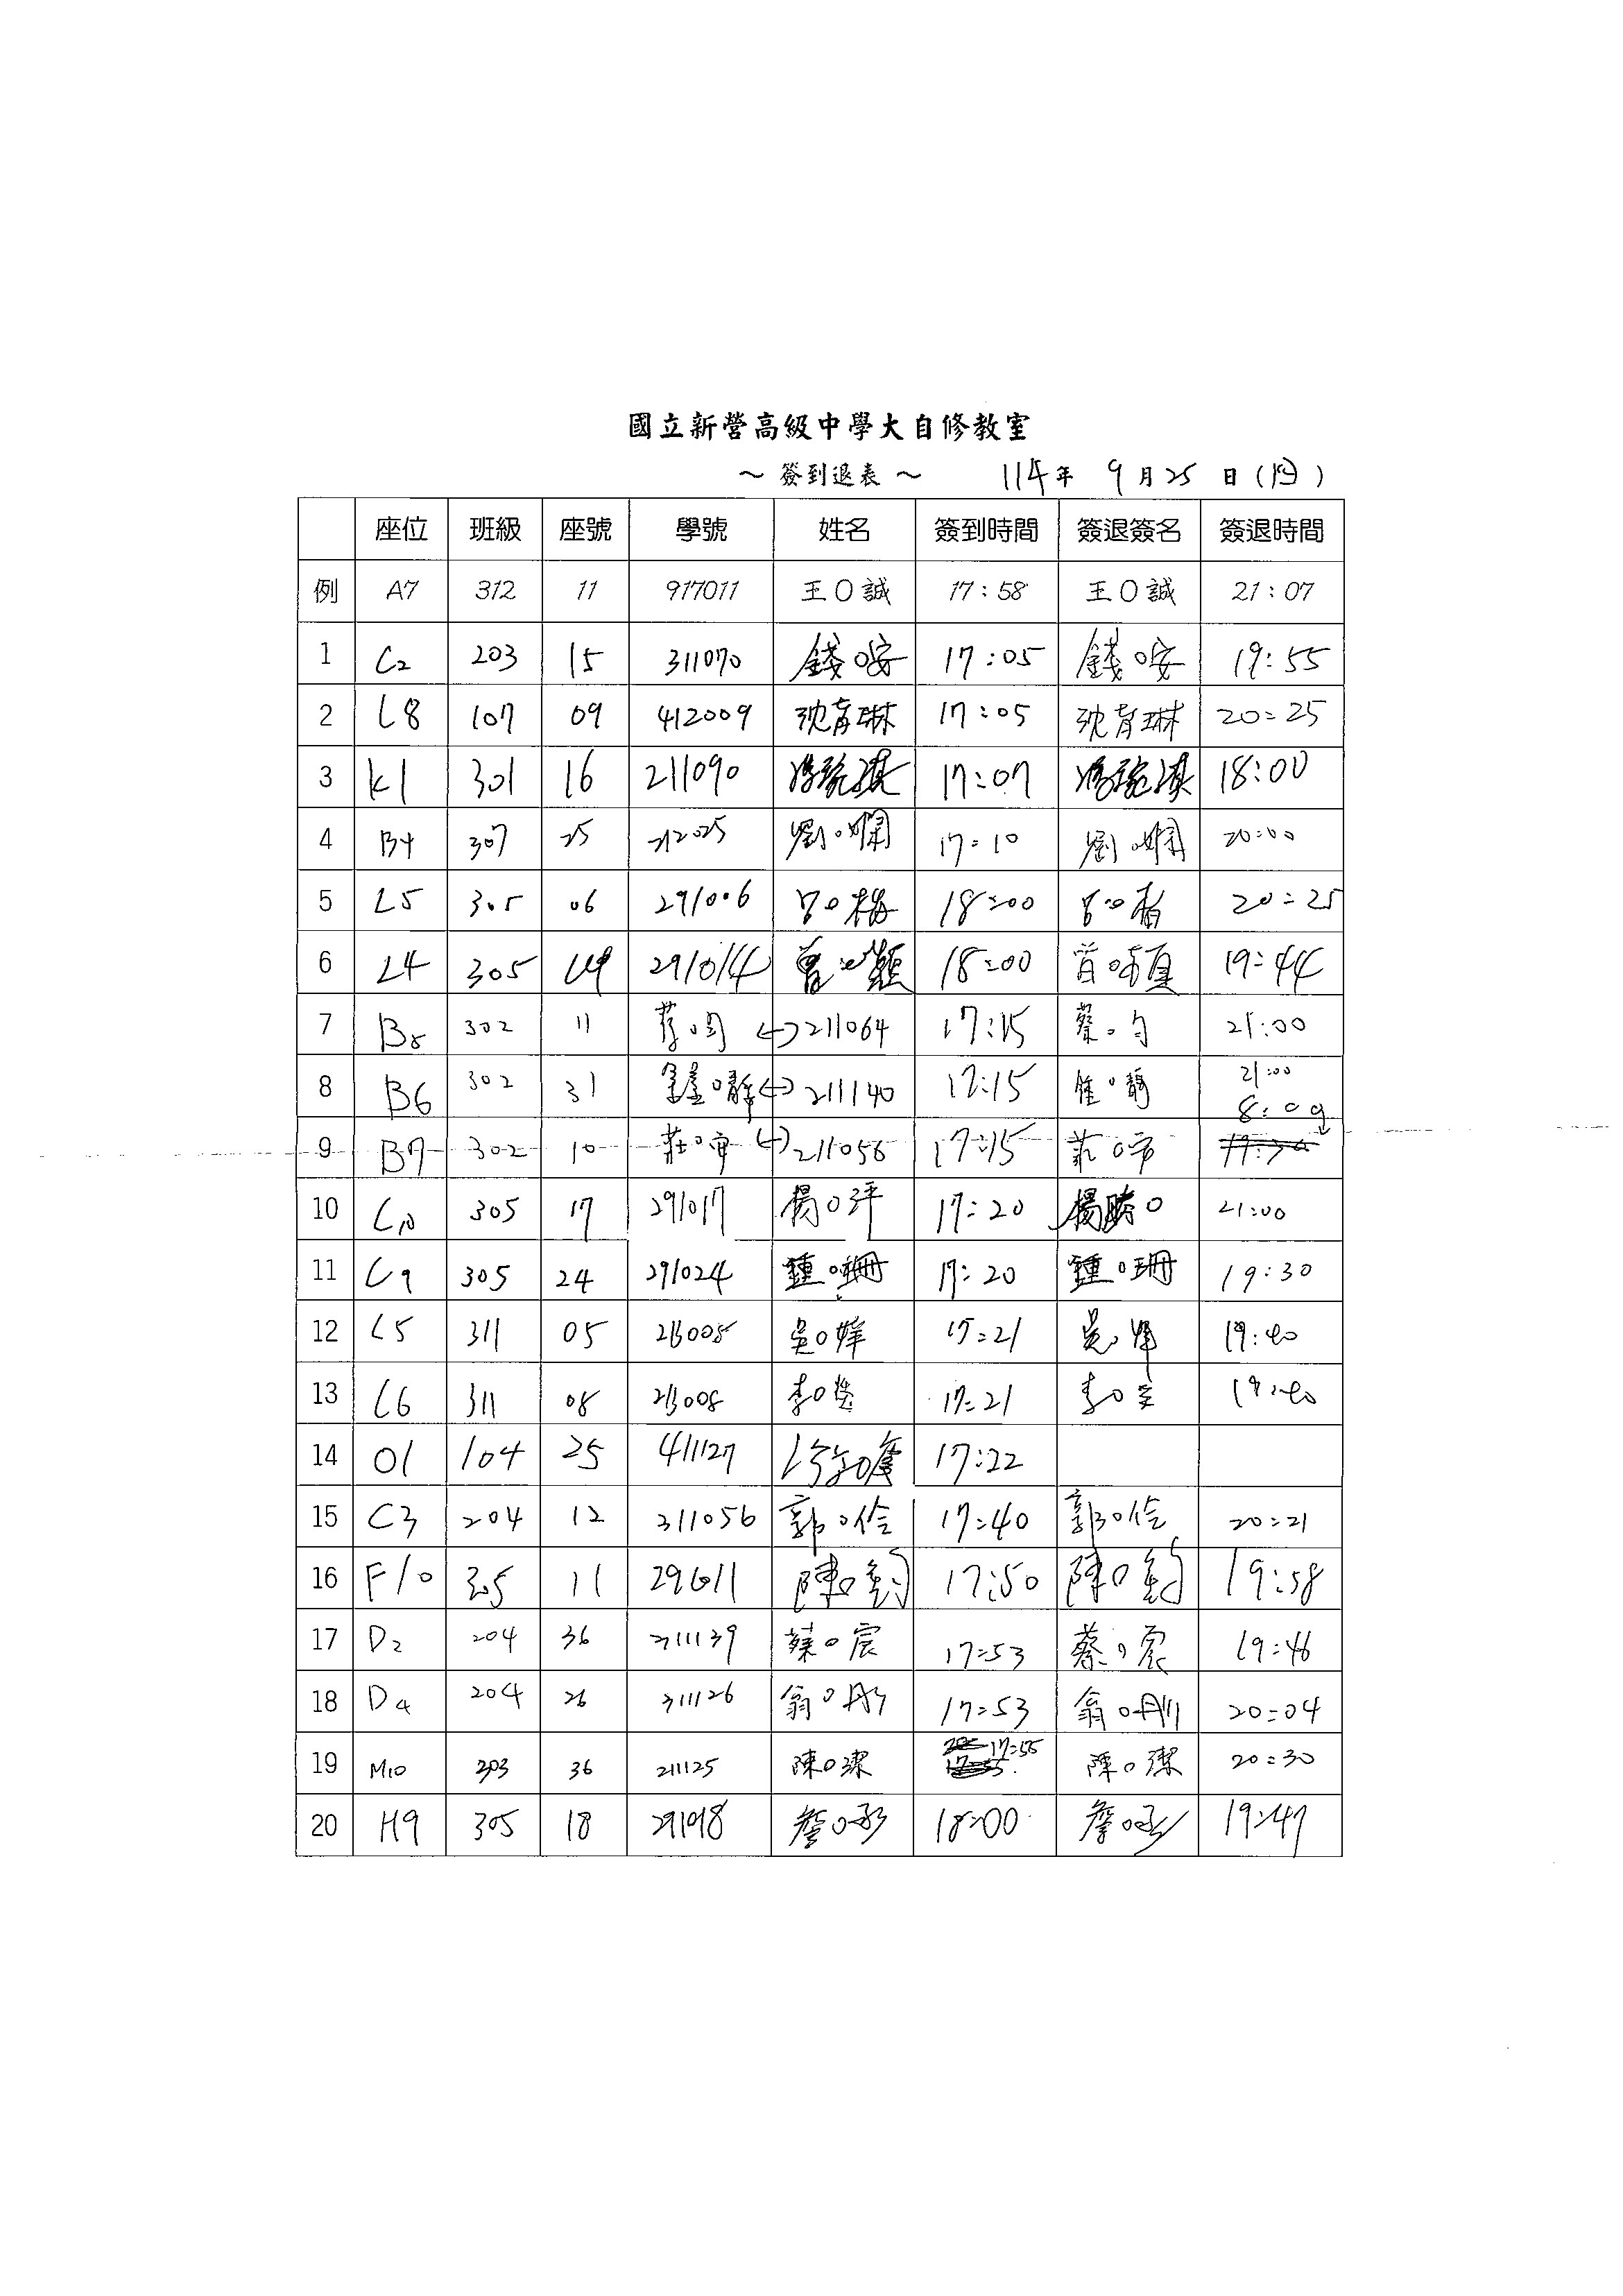 國立新營高級中學大自修教室
～ 簽到退表 ～ 114年 9月25日(四)
座位 班級 座號 學號 姓名 簽到時間 簽退簽名 簽退時間
例 A7 312 11 917011 王O誠 17:58 王O誠 21:07
1 C2 203 15 311070 錢O安 17:05 錢O安 19:55
2 L8 107 09 412009 沈育琳 17:05 沈育琳 20:25
3 K1 301 16 211090 17:07 18:00
4 B4 307 25 212025 劉O嫻 17:10 劉O嫻 20:00
5 L5 305 06 291006 18:00 20:25
6 L4 305 14 291014 曾 18:00 曾 19:44
7 B8 302 11 蔡O勻 ↔ 211064 17:15 蔡O勻 21:00
8 B6 302 31 O靜 ↔ 211140 17:15 21:00
9 B7 302 10 莊O甯 ↔ 211056 17:15 莊O甯 8:09
10 C10 305 17 291017 楊O評 17:20 楊勝O 21:00
11 C9 305 24 291024 鍾O珊 17:20 鍾O珊 19:30
12 L5 311 05 213005 吳O嬅 17:21 吳O 19:40
13 L6 311 08 213008 李O 17:21 李O 19:40
14 O1 104 25 411127 17:22
15 C3 204 12 311056 郭O佺 17:40 郭O佺 20:21
16 F10 305 11 291011 陳O 17:50 陳O 19:58
17 D2 204 36 311139 蔡O宸 17:53 蔡O宸 19:46
18 D4 204 26 311126 翁O彤 17:53 翁O彤 20:04
19 M10 303 36 211125 陳O潔 17:55 陳O潔 20:30
20 H9 305 18 291018 詹O 18:00 詹O 19:47